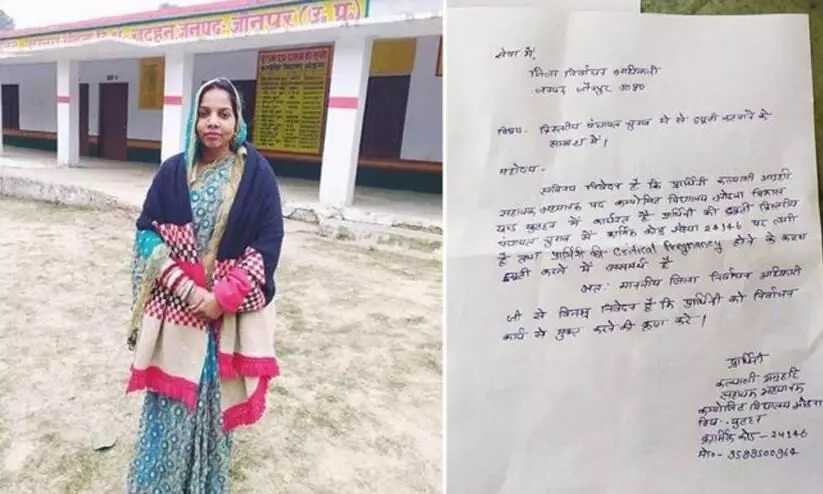 जनपद जौनपुर (उ. प्र.)
सेवा में,
जिला निर्वाचन अधिकारी
जनपद जौनपुर उ०प्र०
विषय- त्रिस्तरीय पंचायत चुनाव में से ड्यूटी कटवाने के
सम्बन्ध में।
महोदय-
सविनय निवेदन है कि प्रार्थिनी कल्याणी अग्रहरि
सहायक अध्यापक पद कम्पोजिट विद्यालय विकास
खण्ड खुटहन में कार्यरत है प्रार्थिनी की ड्यूटी त्रिस्तरीय
पंचायत चुनाव में कार्मिक कोड संख्या 24146 पर लगी
है तथा प्रार्थिनी की Critical Pregnancy होने के कारण
ड्यूटी करने में असमर्थ है
अतः माननीय जिला निर्वाचन अधिकारी
जी से विनम्र निवेदन है कि प्रार्थिनी को निर्वाचन
कार्य से मुक्त करने की कृपा करे।
प्रार्थिनी
कल्याणी अग्रहरि
सहायक अध्यापक
कम्पोजिट विद्यालय
खुटहन
कार्मिक कोड - 24146
मो०-